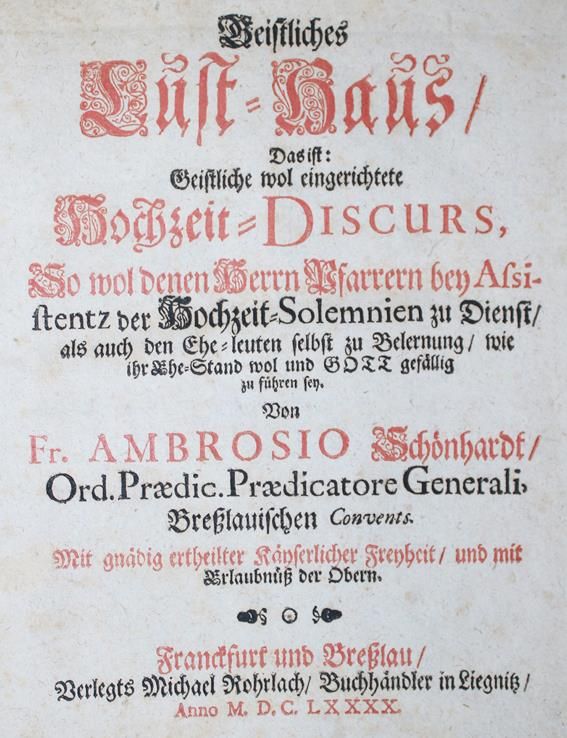 Geistliches
Lust-Hauß/
Das ist:
Geistliche wol eingerichtete
Hochzeit-DISCURS,
So wol denen Herrn Pfarrern bey Assi-
stentz der Hochzeit-Solemnien zu Dienst/
als auch den Ehe-leuten selbst zu Belernung/ wie
ihr Ehe-Stand wol und GOTT gefällig
zu führen sey.
Von
Fr. AMBROSIO Schönhardt/
Ord. Prædic. Prædicatore Generali,
Breßlauischen Convents.
Mit gnädig ertheilter Käyserlicher Freyheit/ und mit
Erlaubnüß der Obern.
Franckfurt und Breßlau/
Verlegts Michael Rohrlach/ Buchhändler in Liegnitz/
Anno M. D. C. LXXXX.